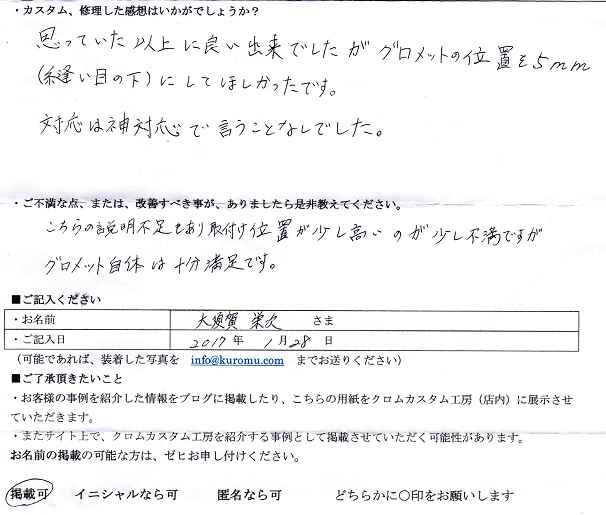 ・カスタム、修理した感想はいかがでしょうか?
思っていた以上に良い出来でしたが グロメットの位置を5mm
(縫い目の下)にしてほしかったです。
対応は神対応で言うことなしでした。
・ご不満な点、または、改善すべき事が、ありましたら是非教えてください。
こちらの説明不足もあり取付け位置が少し高いのが少し不満ですが
グロメット自体は十分満足です。
■ご記入ください
・お名前 大須賀 栄次 さま
・ご記入日 2017年 1月28日
(可能であれば、装着した写真を info@kuromu.com までお送りください)
■ご了承頂きたいこと
・お客様の事例を紹介した情報をブログに掲載したり、こちらの用紙をクロムカスタム工房(店内)に展示させ
ていただきます。
・またサイト上で、クロムカスタム工房を紹介する事例として掲載させていただく可能性があります。
お名前の掲載の可能な方は、ゼヒお申し付けください。
掲載可 イニシャルなら可 匿名なら可 どちらかに〇印をお願いします